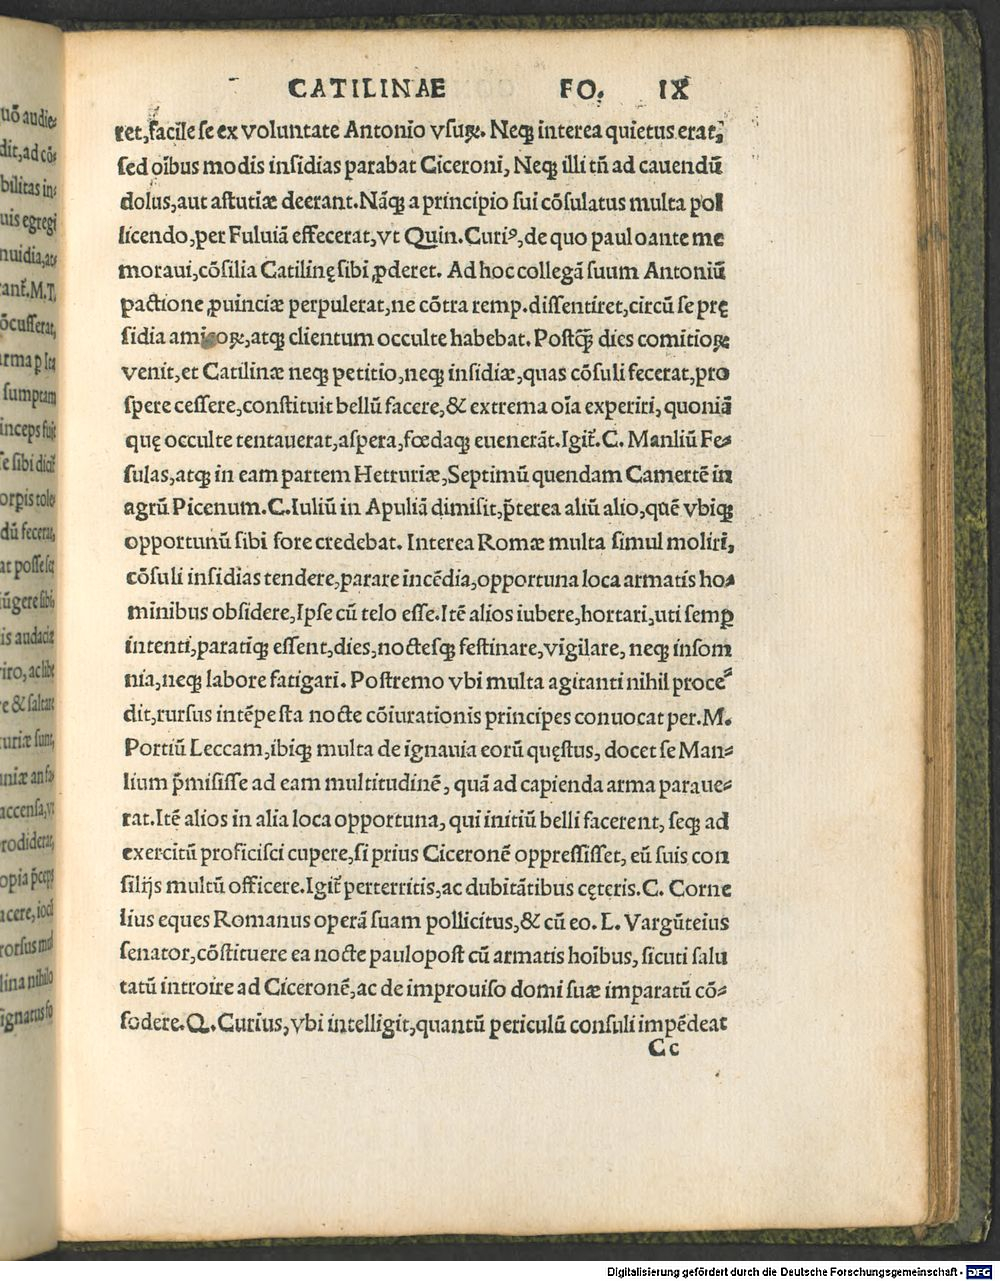 CATILINAE FO. IX
ret,facile se ex voluntate Antonio vsuꝝ. Neqꝫ interea quietus erat,
sed oībus modis insidias parabat Ciceroni, Neqꝫ illi tn̄ ad cauendū
dolus,aut astutiæ deerant.Nāqꝫ a principio sui cōsulatus multa pol
licendo,per Fuluiā effecerat,vt Quin.Curiꝰ,de quo paul oante me
moraui,cōsilia Catilinę sibi ꝓderet. Ad hoc collegā suum Antoniū
pactione ꝓuinciæ perpulerat,ne cōtra remp.dissentiret,circū se prę
sidia amicoꝝ,atqꝫ clientum occulte habebat. Postꝙ̄ dies comitioꝝ
venit,et Catilinæ neqꝫ petitio,neqꝫ insidiæ,quas cōsuli fecerat,pro
spere cessere,constituit bellū facere,& extrema oīa experiri, quoniā
quę occulte tentauerat,aspera,fœdaqꝫ euenerāt.Igit̄.C. Manliū Fe⸗
sulas,atqꝫ in eam partem Hetruriæ,Septimū quendam Camertē in
agrū Picenum.C.Iuliū in Apuliā dimisit,p̄terea aliū alio,quē vbiqꝫ
opportunū sibi fore credebat. Interea Romæ multa simul moliri,
cōsuli insidias tendere,parare incēdia,opportuna loca armatis ho⸗
minibus obsidere,Ipse cū telo esse.Itē alios iubere,hortari,uti semꝑ
intenti,paratiqꝫ essent,dies,noctesqꝫ festinare,vigilare, neqꝫ insom
nia,neqꝫ labore fatigari. Postremo vbi multa agitanti nihil proce⸗
dit,rursus intēpesta nocte cōiurationis principes conuocat per.M.
Portiū Leccam,ibiqꝫ multa de ignauia eorū quęstus, docet se Man⸗
lium p̄misisse ad eam multitudinē, quā ad capienda arma paraue⸗
rat.Itē alios in alia loca opportuna, qui initiū belli facerent, seqꝫ ad
exercitū proficisci cupere,si prius Ciceronē oppressisset, eū suis con
silijs multū officere.Igit̄ perterritis,ac dubitātibus cęteris.C. Corne
lius eques Romanus operā suam pollicitus,& cū eo. L. Vargūteius
senator,cōstituere ea nocte paulopost cū armatis hoībus, sicuti salu
tatū introire ad Ciceronē,ac de improuiso domi suæ imparatū cō⸗
fodere.Q.Curius,vbi intelligit,quantū periculū consuli impēdeat
Cc
uō audie⸗
dit,ad cō⸗
bilitas in⸗
uis egregi
nuidia,at⸗
ant̄.M.T.
ōcusserat,
arma ꝑ Ita
sumptam
inceps fuit
se sibi dicit̄
orꝑis tole
dū fecerat,
at posse se
iūgere sibi,
is audaciæ
iro, ac libe
e & saltare
uriæ sunt,
niæ an fa⸗
accensa,vt
rodiderat,
opia p̄ceps
acere, ioci
rorsus mul
lina nihilo
ignatus so
Digitalisierung gefördert durch die Deutsche Forschungsgemeinschaft - DFG